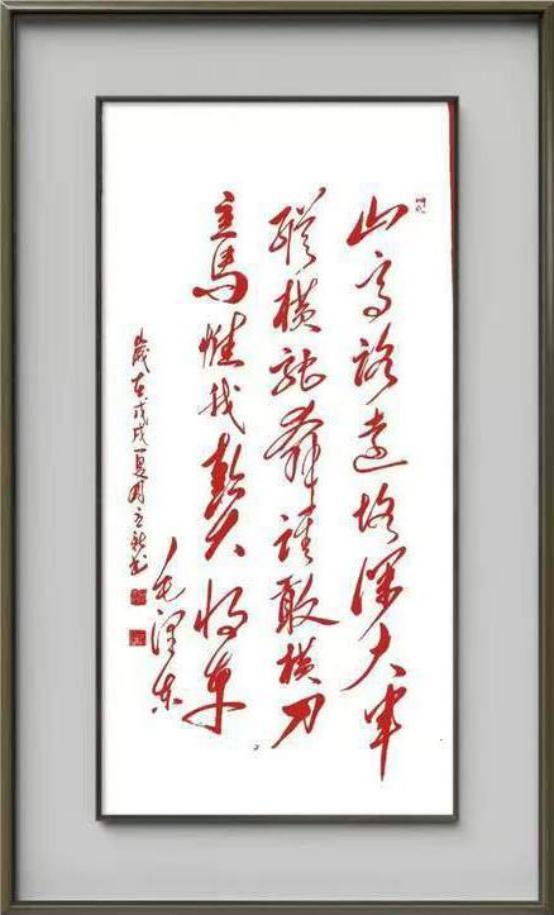 山高路遠坑深大軍
縱横馳奔誰敢横刀
立馬惟我彭大将軍
毛澤东
歲在戊戌夏月立新書